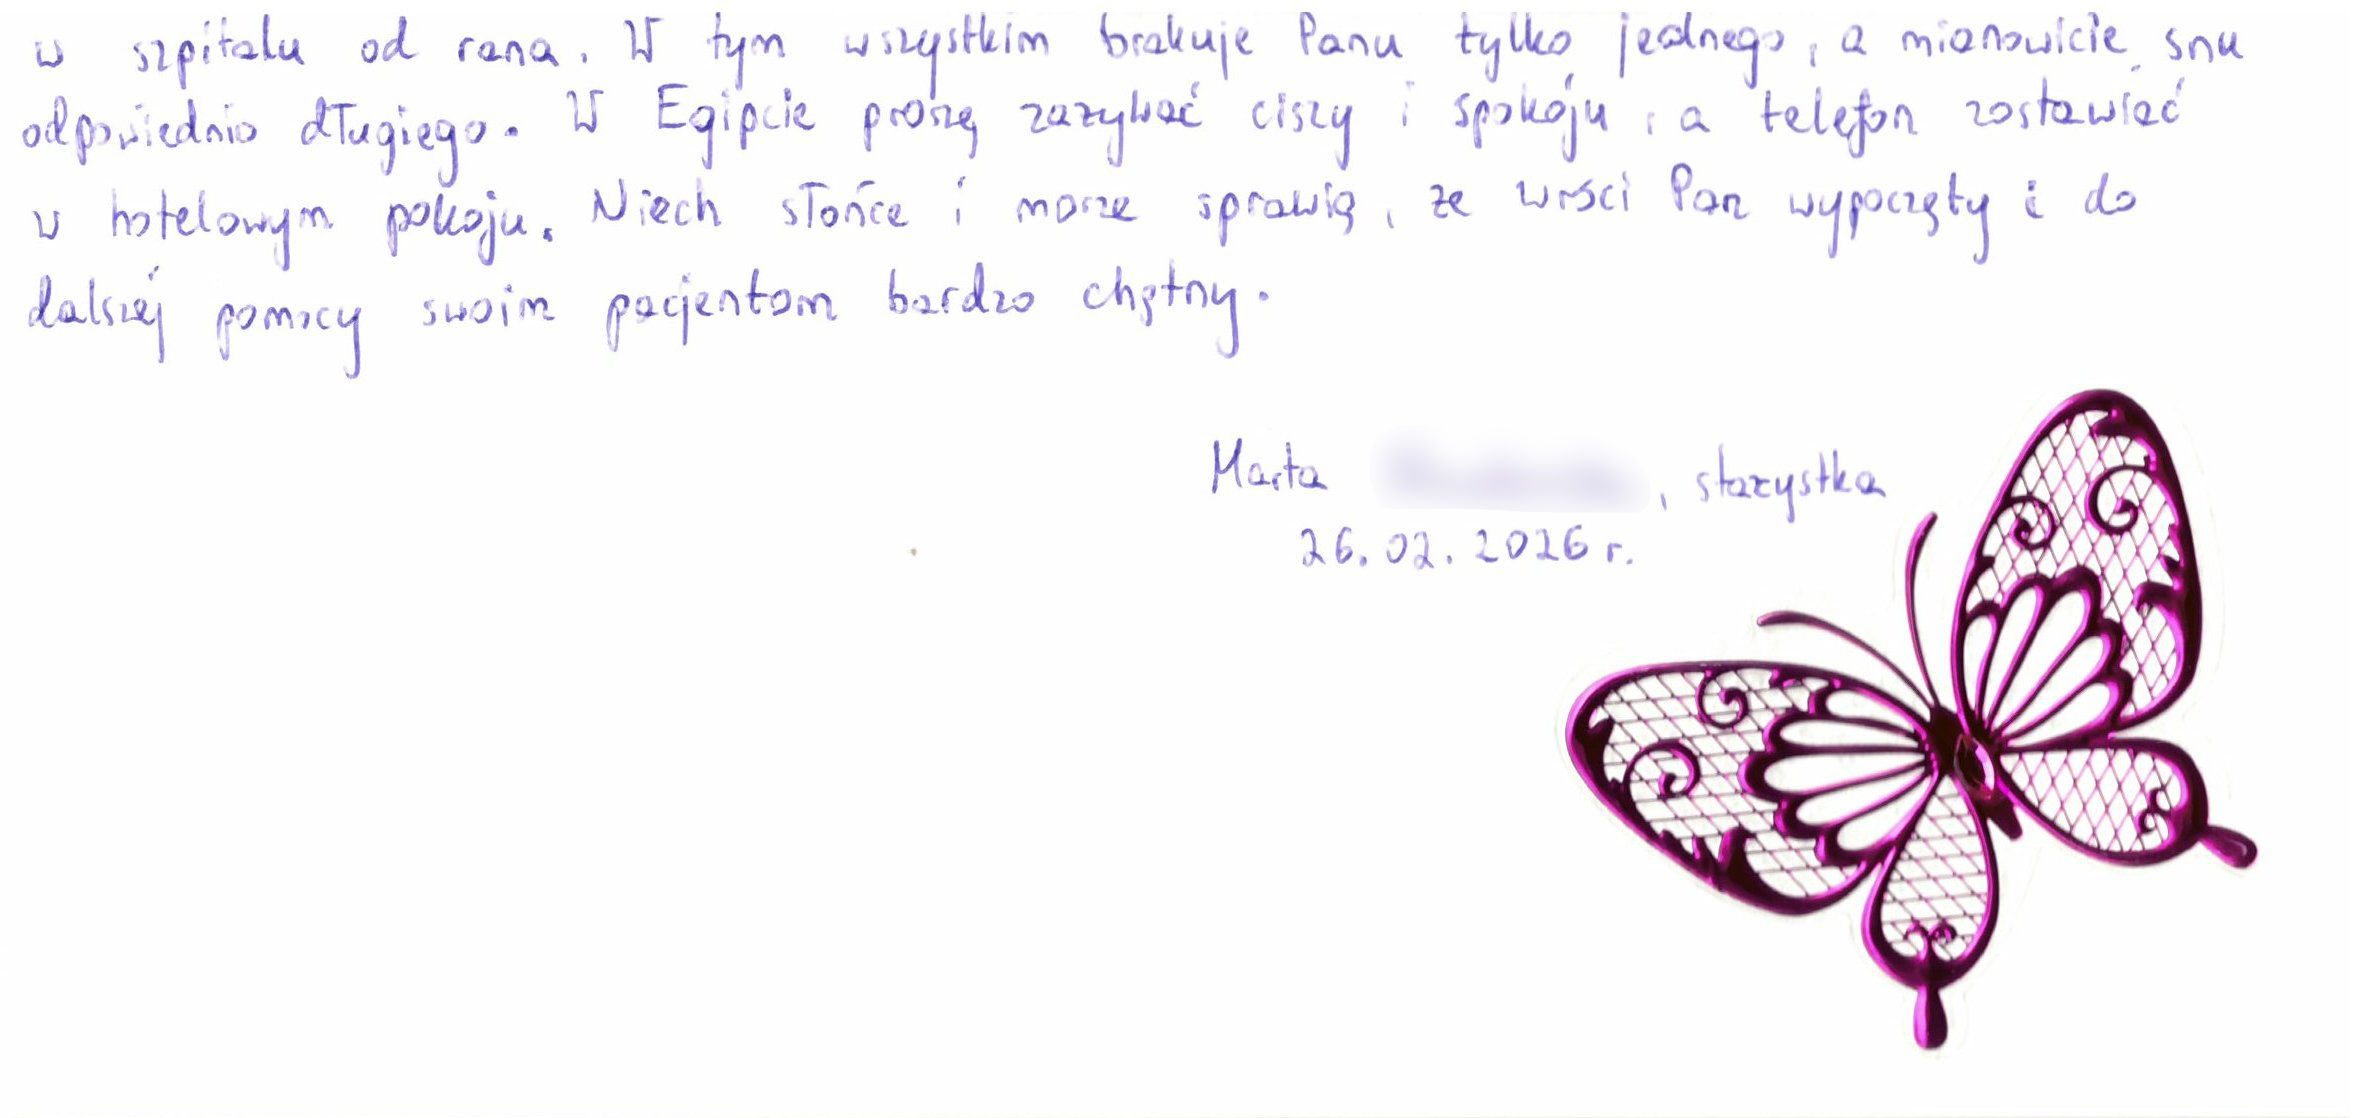 w szpitalu od rana. W tym wszystkim brakuje Panu tylko jednego, a mianowicie snu
odpowiednio długiego. W Egipcie proszę zażywać ciszy i spokoju, a telefon zostawiać
w hotelowym pokoju. Niech słońce i morze sprawią, że wróci Pan wypoczęty i do
dalszej pomocy swoim pacjentom bardzo chętny.
Marta , stażystka
26.02.2026 r.